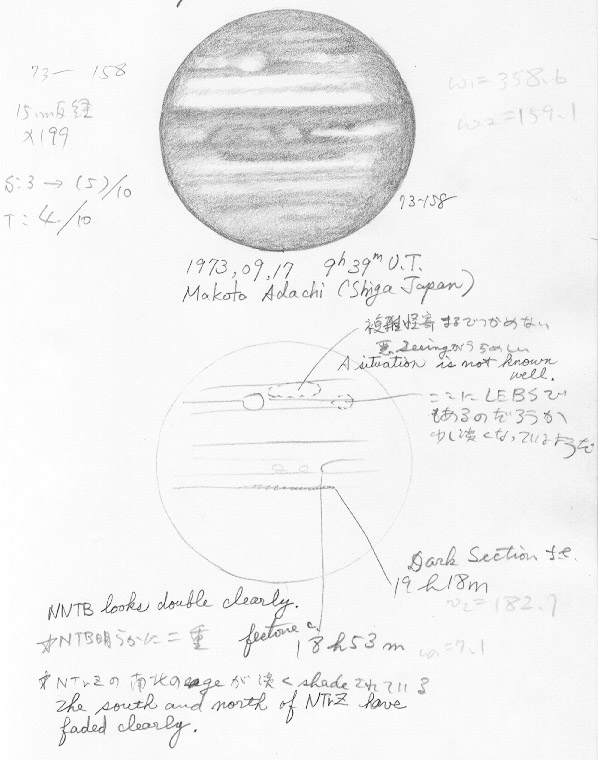 73-158
15cm反経
×199
S:3→(5)/10
T:4/10
ω1=358.6
ω2=159.1
73-158
1973,09,17 9h39m U.T.
Makoto Adachi (Shiga Japan)
複雑怪奇 まるでつかめない
悪 Seeingがうらめしい
A situation is not known
well.
ここに LEBSで
もあるのだろうか
少し淡くなっているようだ
Dark Section
19h18m
ω2=182.7
NNTB looks double clearly.
NTB明らかに二重
18h53m
ω1=7.1
NTrZの南北のegeが淡くshadeされている
The south and north of NTrZ have
faded clearly.